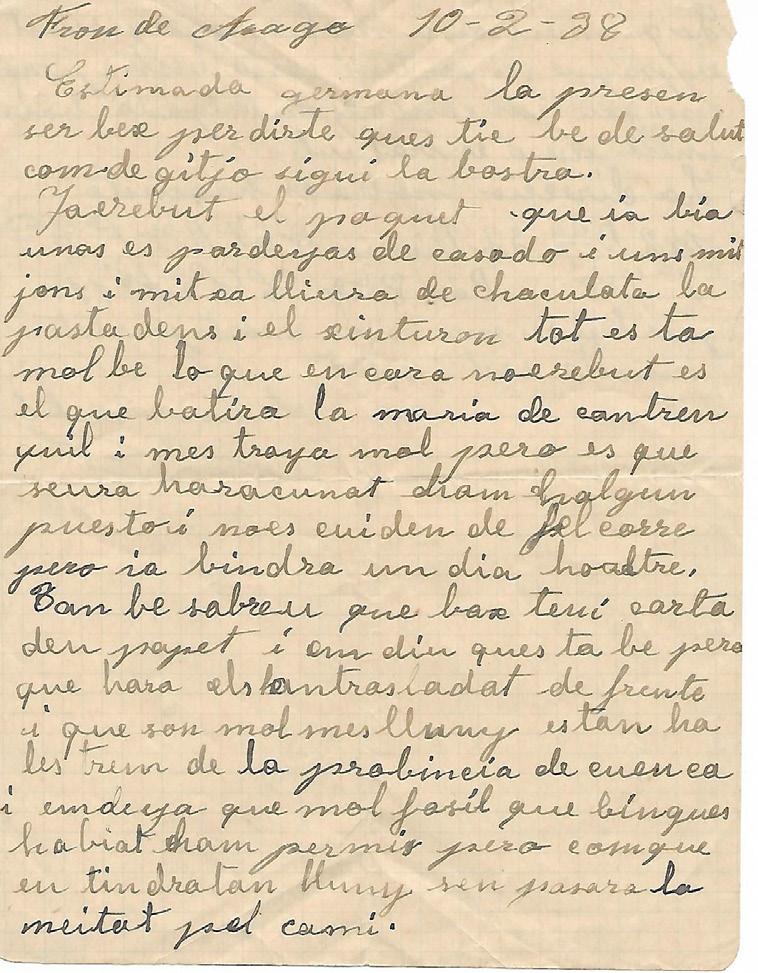 Fron de Arago 10-2-38
Estimada germana la presen
ser bex perdirte ques tic be de salut
com de gitjo sigui la bostra.
Jaerebut el paquet que ia bia
unas es pardeyas de casado i uns mit
jons i mitxa lliura de chaculata la
pasta dens i el xinturon tot es ta
mol be lo que en cara noerebut es
el que batira la maria de can tren
quil i mes traya mal pero es que
seura haracunat dham halgun
puesto i noes cuiden de fel corre
pero ia bindra un dia hoaltre.
Tan be sabreu que bax teni carta
den papet i em diu ques ta be pero
que hara els hantrasladat de frente
i que son mol mes lluny es tan ha
les trem de la probincia de cuenca
i emdeya que mol fasil que bingues
habiat dham permis pero comque
en tindratan lluny sen pasara la
meitat pel cami.